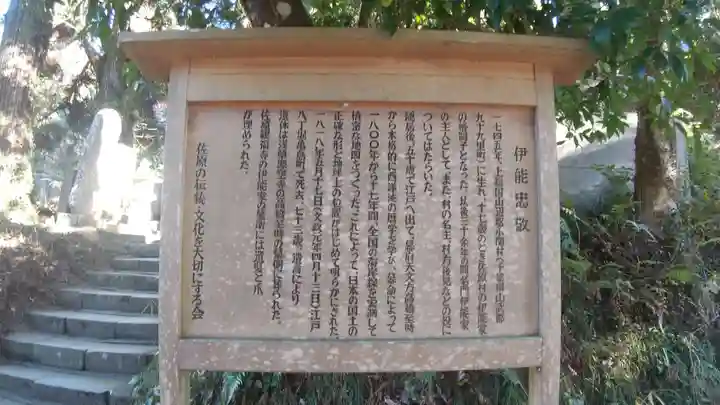 伊能忠敬
一七四五年、上総国山辺郡小関村(今千葉県山武郡
九十九里町)に生れ、十七歳のとき佐原村の伊能家
の養嗣子となった。以後三十余年の間家業伊能家
の主人として、また、村の名主、村方後見などの役に
ついてはたらいた。
隠居後、五十歳で江戸へ出て、幕府天文方高橋至時
から本格的に西洋流の暦学を学び、幕命によって
一八〇〇年から十七年間、全国の海岸線を実測して
精密な地図をつくった。これによって、日本の国土の
正確な形と地理上の位置がはじめて明らかにされた。
一八一八年五月十七日(文政元年四月十三日)江戸
八丁堀亀島町で死去、七十三歳。遺言により
遺体は浅草源空寺の高橋至時の墓側に葬られた。
佐原観福寺の伊能家の墓所には遺髪と爪
が埋められた。
佐原の伝統、文化を大切にする会